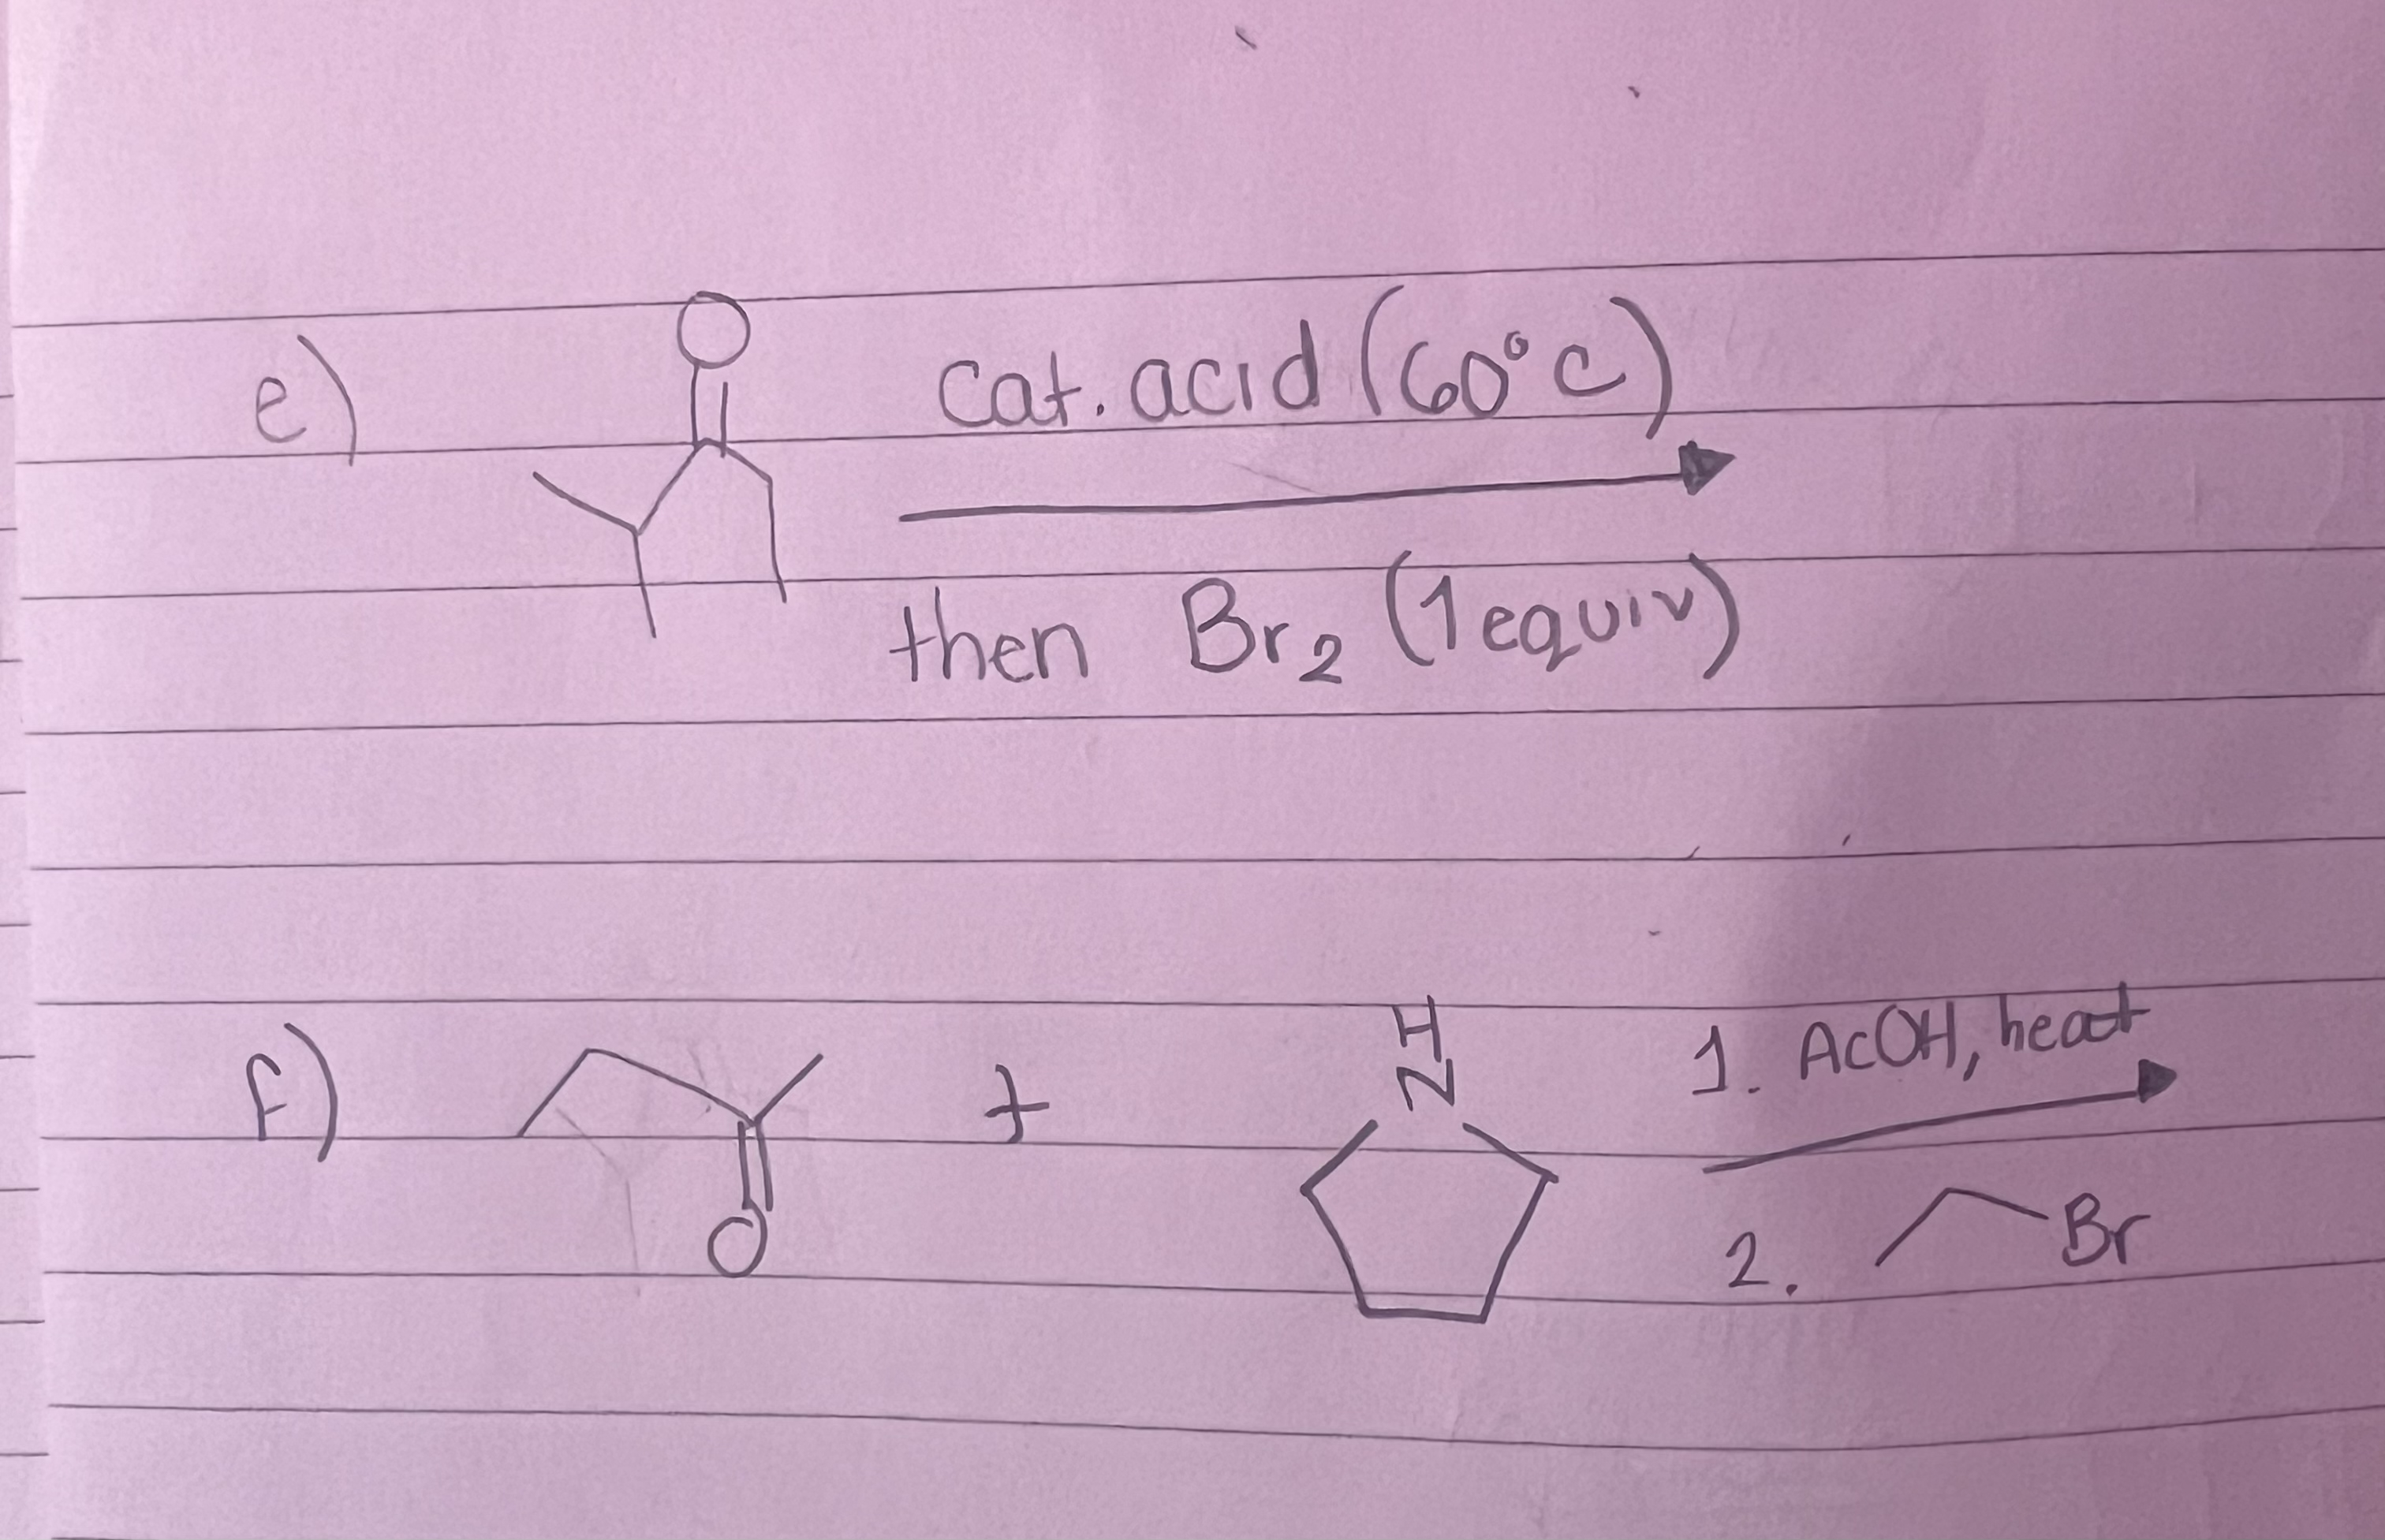 e)
O
cat. acid (60°C)
then Br2 (1 equiv)
f)
O
+
H
N
1. AcOH, heat
2. Br